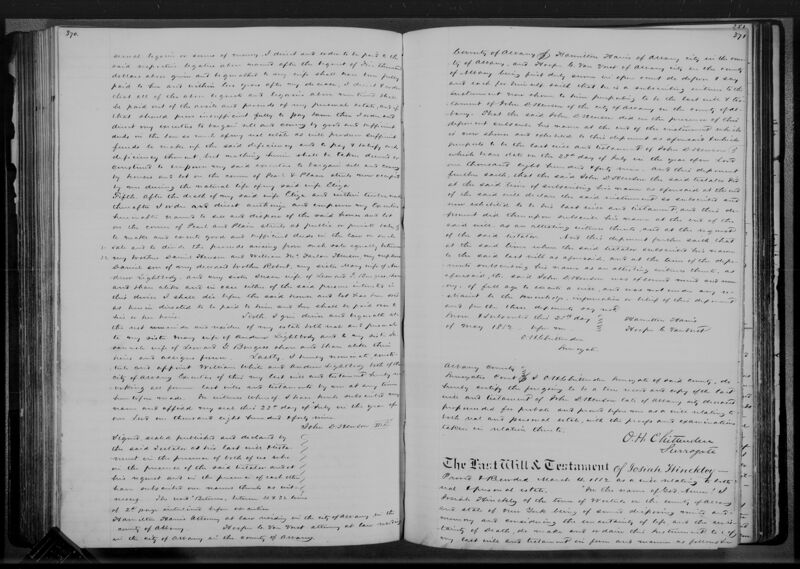 370.
several legacies or sums of money I direct and order to be paid to the
said respective legatees above named after the legacy of Six thousand
dollars above given and bequeathed to my wife shall have been fully
paid to her and within two years after my decease, I direct & order
that all of the above bequests and legacies above mentioned shall
be paid out of the avails and proceeds of my personal estate, and if
that should prove insufficient fully to pay them then I order and
direct my executors to bargain sell and convey by good and sufficient
deeds in the law so much of my real estate as will produce sufficient
funds to make up the said deficiency and to pay & satisfy such
deficiency thereout, but nothing herein shall be taken deemed or
construed to empower my said executors to bargain sell and convey
my house and lot on the corner of Pearl & Plain streets now occupied
by me during the natural life of my said wife Eliza
Fifth After the death of my said wife Eliza and within
thereafter I order and direct authorize and empower my Executors
hereinafter named to sell and dispose of the said house and lot
on the corner of Pearl and Plain streets at public or private sale &
to make and execute good and sufficient deeds in the law on such
sale and to divide the proceeds arising from such sale equally between
my Brother Daniel Henson and William Mc Farlan Henson, my nephew
Daniel son of my deceased brother Robert, my sister Mary wife of An-
drew Lightbody and my sister
and share alike and in case either of the said persons interested in
this devise shall die before the said house and lot
be herein directed to be paid to him and her shall be paid to
his or her heirs. Sixth I give devise and bequeath all
the rest remainder and residue of my estate both real and personal
to my sister Mary wife of Andrew Lightbody and to my sister Su-
sannah wife of Leonard C Burgess share and share alike their
heirs and assigns forever. Lastly, I hereby nominate consti-
tute and appoint William White and Andrew Lightbody both of the
city of Albany Executors of this my last will and testament hereby re-
voking all former last wills and testaments by me at any time
heretofore made. In witness whereof I have hereunto subscribed my
name and affixed my seal this 22d day of July in the year of
our Lord one thousand eight hundred & forty nine
John D Henson
Signed sealed published and declared by
the said Testator as his last will & testa-
ment in the presence of both of us who
in the presence of the said testator and at
his request and in the presence of each other
have subscribed our names thereto as wit-
nesses. The word
of 2d page interlined before execution
Hamilton Harris Attorney at law residing in the city of Albany in the
county of Albany
in the city of Albany in the County of Albany
371
County of Albany Hamilton Harris of Albany city in the coun-
ty of Albany, and of Albany city in the county
of Albany being first duly sworn in open court do depose & say
and each for himself saith that he is a subscribing witness to the
instrument now shown to him purporting to be the last will & tes-
tament of John D Henson of the city of Albany in the county of Al-
bany. That the said John D Henson did in the presence of this
deponent subscribe his name at the end of the instrument which
is now shown and exhibited to this deponent as aforesaid & which
purports to be the last will and testament of John D Henson &
which bears date on the 22d day of July in the year of our Lord
one thousand eight hundred & forty nine. And this deponent
further saith, that the said John D Henson the said testator did
at the said time of subscribing his name as aforesaid at the end
of the said will declare the said instrument so subscribed and
now exhibited to be his last will and testament and this de-
ponent did thereupon subscribe his name at the end of the
said will as an attesting witness thereto and at the request
of the said testator. And this deponent further saith that
at the said time when the said testator subscribed his name
to the said last will as aforesaid, and at the time of the depo-
nent's subscribing his name as an attesting witness thereto, as
aforesaid, the said John D Henson was of sound mind and mem-
ory, of full age to execute a will, and was not under any re-
straint to the knowledge, information or belief of this deponent
and further these deponents say not
Sworn & Subscribed this 25th day
of May 1852. before me
Hamilton Harris
O H Chittenden
Surrogate
Albany County
Surrogates Court } SS I O H Chittenden Surrogate of said county, do
hereby certify the foregoing to be a true record and copy of the last
will and testament of John D Henson late of Albany city deceased
propounded for probate and proved before me as a will relating to
both real and personal estate, with the proofs and examinations
taken in relation thereto.
O. H. Chittenden
Surrogate
The Last Will & Testament of Josiah Hinckley
Proved & Recorded March 1852 as a will relating to both
real & personal estate. In the name of God Amen! I
Josiah Hinckley of the town of Westerlo in the County of Albany
and State of New York being of sound disposing mind and
memory and considering the uncertainty of life and the cer-
tainty of Death, do make and ordain this Instrument to be
my last will and testament in form and manner as follows to